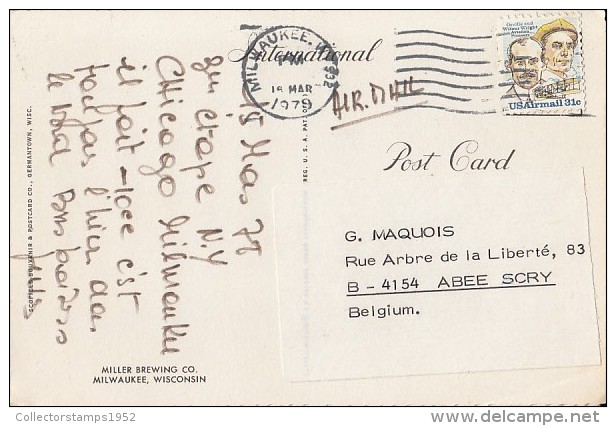 Orville and
Wilbur Wright
Aviation
Pioneers
USAirmail 31c
MILWAUKEE, WI 532
PM
18 MAR
1979
International
AIR MAIL
Post Card
15 Mars 79
en étape N.Y
Chicago Milwaukee
il fait -10ec c'est
toujours l'hiver dans
le Nord Bons baisers
G. MAQUOIS
Rue Arbre de la Liberté, 83
B - 4154 ABEE SCRY
Belgium.
MILLER BREWING CO.
MILWAUKEE, WISCONSIN
SCOFIELD SOUVENIR & POSTCARD CO., GERMANTOWN, WISC.
REG. U. S. A. PAT.
Collectorstamps1952
www.delcampe.net